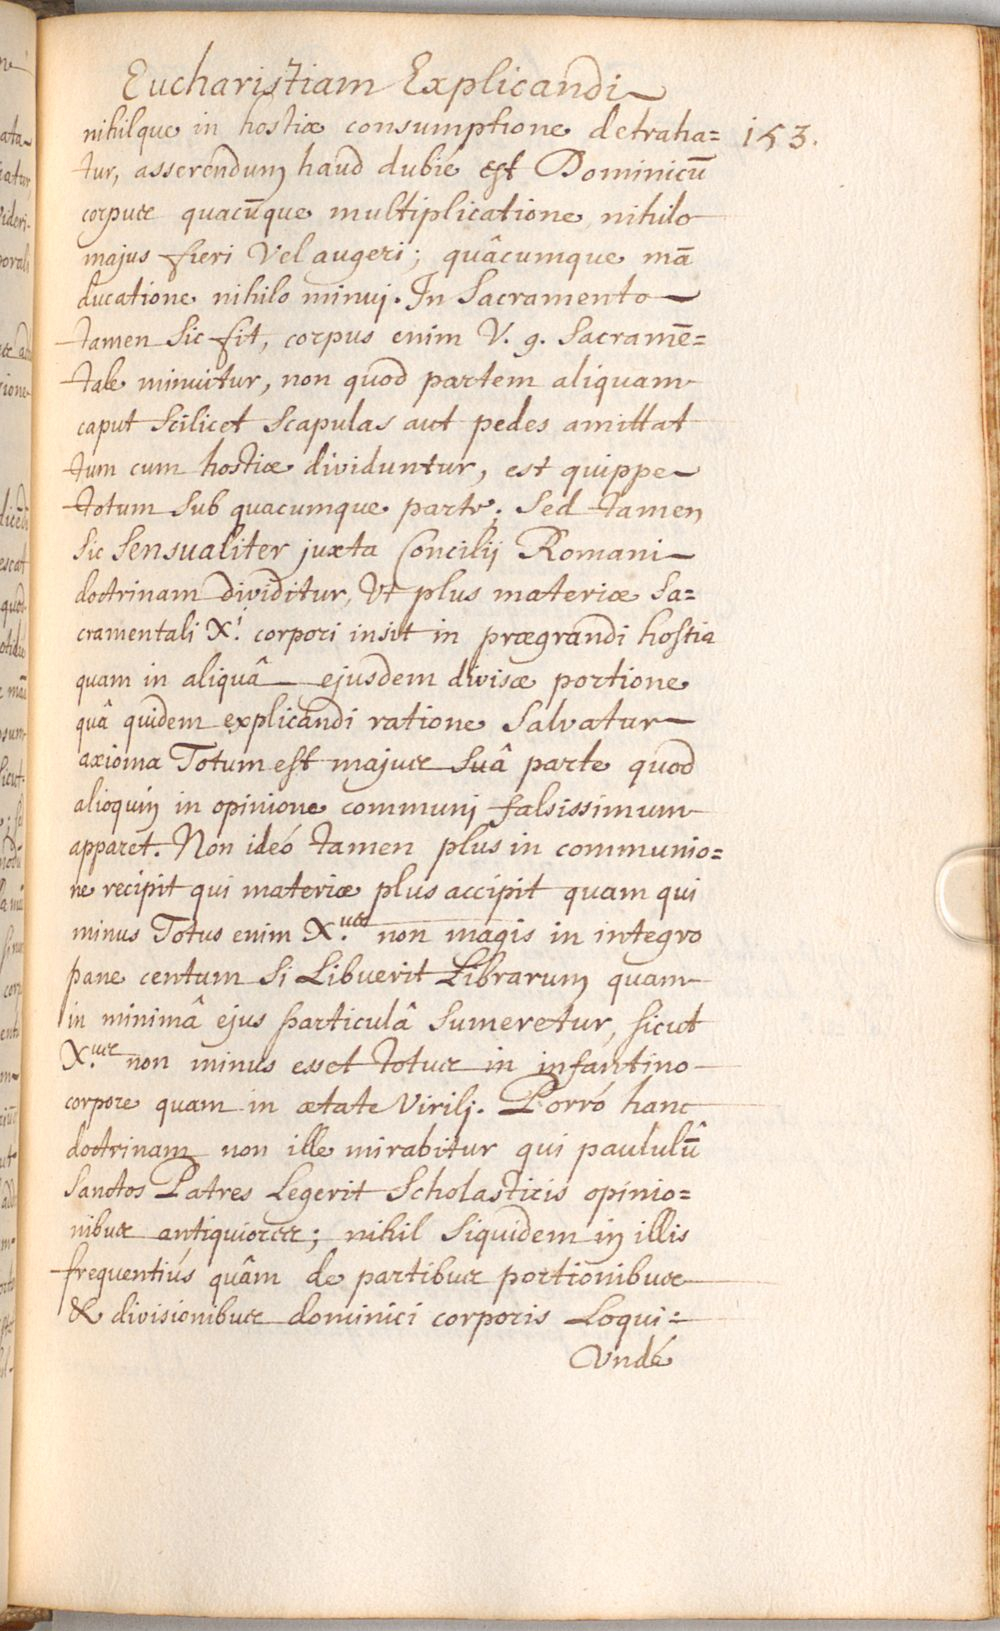 Eucharistiam Explicandi
nihilque in hostiæ consumptione detraha= 153.
tur, asserendum haud dubié est Dominicū
corpus quacūque multiplicatione nihilo
majus fieri vel augeri; quâcumque mā
ducatione nihilo minui. In Sacramento
tamen sic fit, corpus enim V. g. Sacramē=
tale minuitur, non quod partem aliquam
caput scilicet scapulas aut pedes amittat
tum cum hostiæ dividuntur, est quippe
totum sub quacumque parte; Sed tamen
sic sensualiter juxta Concilij Romani
doctrinam dividitur, ut plus materiæ sa=
cramentali X.i corpori insit in prægrandi hostia
quam in aliquâ ejusdem divisæ portione
quâ quidem explicandi ratione salvatur
axioma Totum est majus suâ parte quod
alioquin in opinione communi falsissimum
apparet. Non ideó tamen plus in communio=
ne recipit qui materiæ plus accipit quam qui
minus Totus enim X.us non magis in integro
pane centum si libuerit Librarum quam
in minimâ ejus particulâ sumeretur, sicut
X.us non minus esset totus in infantino
corpore quam in ætate virili. Porró hanc
doctrinam non ille mirabitur qui paululū
Sanctos Patres Legerit Scholasticis opinio=
nibus antiquiores; nihil siquidem in illis
frequentiús quâm de partibus portionibus
& divisionibus dominici corporis Loqui:
Undé